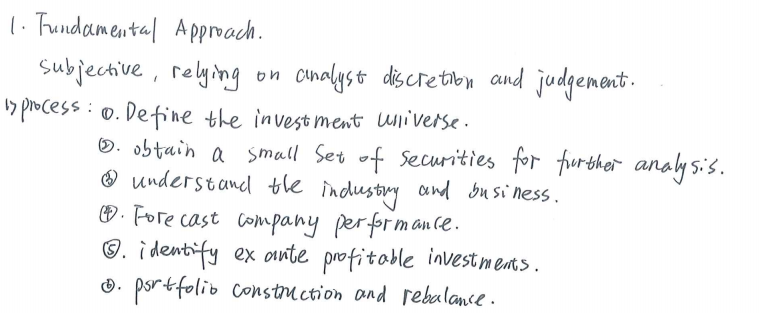 1. Fundamental Approach.
Subjective, relying on analyst discretion and judgement.
1> process: ①. Define the investment universe.
②. obtain a small set of securities for further analysis.
③ understand the industry and business.
④. Forecast company performance.
⑤. identify ex ante profitable investments.
⑥. portfolio construction and rebalance.